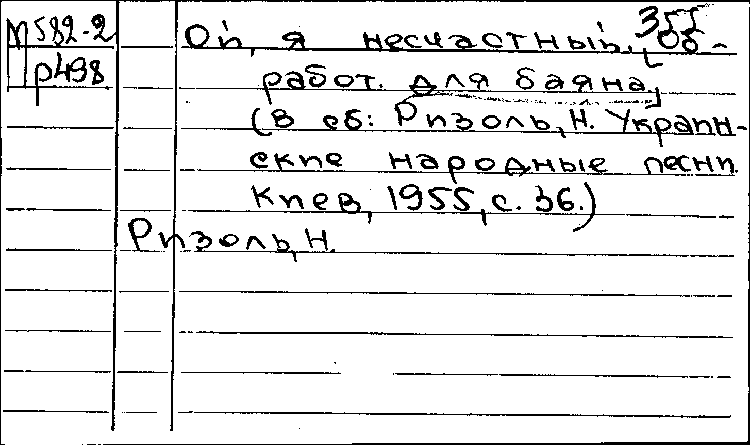 М582-2
р498
355
Ой, я несчастный. [Об-
работ. для баяна]
(В сб: Ризоль, Н. Украин-
ские народные песни.
Киев, 1955, с. 36.)
Ризоль, Н.